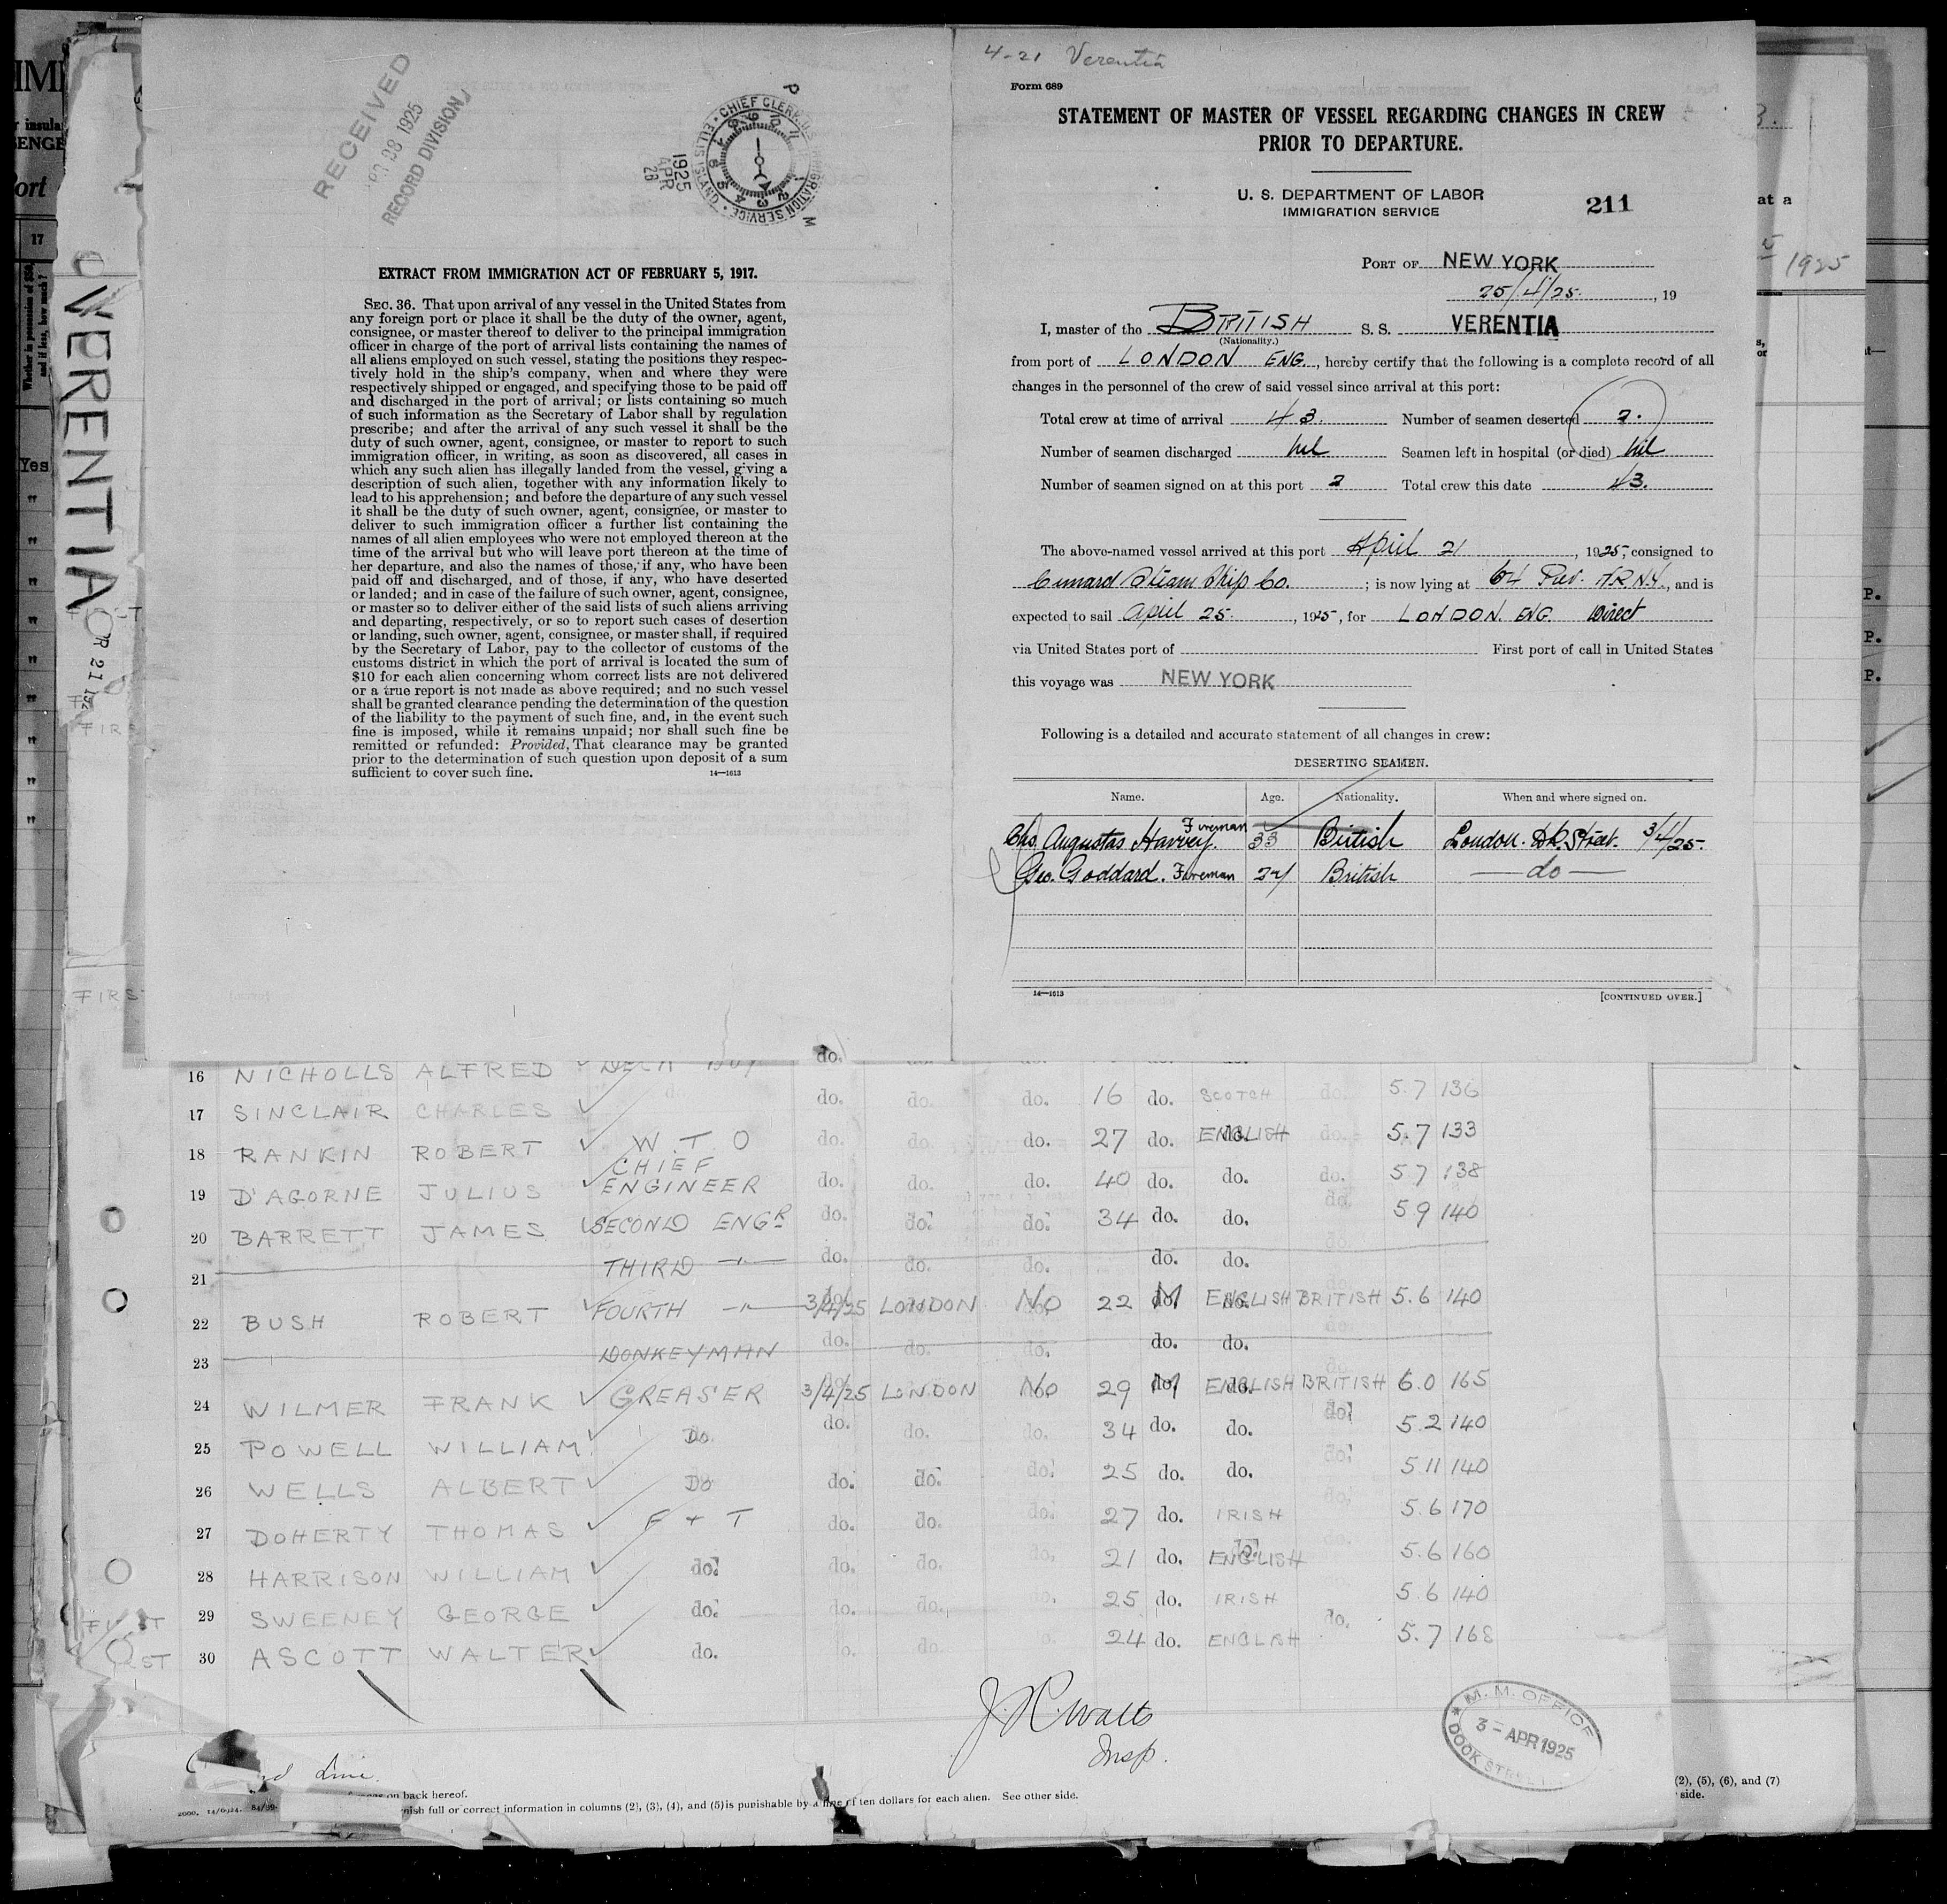 RECEIVED
1925
RECORD DIVISION
CHIEF CLERK U.S. IMMIGRATION SERVICE · ELLIS ISLAND
1925
APR
28
P
M
EXTRACT FROM IMMIGRATION ACT OF FEBRUARY 5, 1917.
SEC. 36. That upon arrival of any vessel in the United States from
any foreign port or place it shall be the duty of the owner, agent,
consignee, or master thereof to deliver to the principal immigration
officer in charge of the port of arrival lists containing the names of
all aliens employed on such vessel, stating the positions they respec-
tively hold in the ship's company, when and where they were
respectively shipped or engaged, and specifying those to be paid off
and discharged in the port of arrival; or lists containing so much
of such information as the Secretary of Labor shall by regulation
prescribe; and after the arrival of any such vessel it shall be the
duty of such owner, agent, consignee, or master to report to such
immigration officer, in writing, as soon as discovered, all cases in
which any such alien has illegally landed from the vessel, giving a
description of such alien, together with any information likely to
lead to his apprehension; and before the departure of any such vessel
it shall be the duty of such owner, agent, consignee, or master to
deliver to such immigration officer a further list containing the
names of all alien employees who were not employed thereon at the
time of the arrival but who will leave port thereon at the time of
her departure, and also the names of those, if any, who have been
paid off and discharged, and of those, if any, who have deserted
or landed; and in case of the failure of such owner, agent, consignee,
or master so to deliver either of the said lists of such aliens arriving
and departing, respectively, or so to report such cases of desertion
or landing, such owner, agent, consignee, or master shall, if required
by the Secretary of Labor, pay to the collector of customs of the
customs district in which the port of arrival is located the sum of
$10 for each alien concerning whom correct lists are not delivered
or a true report is not made as above required; and no such vessel
shall be granted clearance pending the determination of the question
of the liability to the payment of such fine, and, in the event such
fine is imposed, while it remains unpaid; nor shall such fine be
remitted or refunded: Provided, That clearance may be granted
prior to the determination of such question upon deposit of a sum
sufficient to cover such fine. 14—1613
4-21 Verentia
Form 689
STATEMENT OF MASTER OF VESSEL REGARDING CHANGES IN CREW
PRIOR TO DEPARTURE.
U. S. DEPARTMENT OF LABOR
IMMIGRATION SERVICE
211
PORT OF NEW YORK
25/4/25. , 19
I, master of the BRITISH S. S. VERENTIA
(Nationality.)
from port of LONDON ENG., hereby certify that the following is a complete record of all
changes in the personnel of the crew of said vessel since arrival at this port:
Total crew at time of arrival 43. Number of seamen deserted 2.
Number of seamen discharged Nil Seamen left in hospital (or died) Nil
Number of seamen signed on at this port 2 Total crew this date 43.
The above-named vessel arrived at this port April 21 , 1925, consigned to
Cunard Steam Ship Co. ; is now lying at 64 Pier. N R N.Y., and is
expected to sail April 25. , 1925, for LONDON. ENG. Direct
via United States port of First port of call in United States
this voyage was NEW YORK
Following is a detailed and accurate statement of all changes in crew:
DESERTING SEAMEN.
Name. Age. Nationality. When and where signed on.
Chs. Augustas Harvey. Fireman 33 British London. Dk. Street. 3/4/25.
Geo. Goddard. Fireman 24 British — do —
14—1613 [CONTINUED OVER.]
VERENTIA
17
Yes
1925
at a
P.
P.
P.
FIRS
16 NICHOLLS ALFRED DECK BOY do.
17 SINCLAIR CHARLES do. do. do. do. 16 do. SCOTCH do. 5.7 136
18 RANKIN ROBERT W.T.O do. do. do. 27 do. ENGLISH do. 5.7 133
19 D'AGORNE JULIUS CHIEF ENGINEER do. do. do. 40 do. do. do. 5 7 138
20 BARRETT JAMES SECOND ENGR do. do. do. 34 do. do. do. 5 9 140
21 THIRD do. do. do. do. do.
22 BUSH ROBERT FOURTH 3/4/25 LONDON No 22 M ENGLISH BRITISH 5.6 140
23 DONKEYMAN do. do. do. do. do.
24 WILMER FRANK GREASER 3/4/25 LONDON No 29 M ENGLISH BRITISH 6.0 165
25 POWELL WILLIAM Do. do. do. do. 34 do. do. do. 5.2 140
26 WELLS ALBERT Do do. do. do. 25 do. do. do. 5 11 140
27 DOHERTY THOMAS F + T do. do. do. 27 do. IRISH 5.6 170
28 HARRISON WILLIAM do. do. do. do. 21 do. ENGLISH 5.6 160
29 SWEENEY GEORGE do. do. do. do. 25 do. IRISH do. 5.6 140
30 ASCOTT WALTER do. do. 24 do. ENGLISH 5.7 168
J. R. Watts
Insp.
M. M. OFFICE
3 - APR 1925
DOCK STREET
Line.
on back hereof.
nish full or correct information in columns (2), (3), (4), and (5) is punishable by a fine of ten dollars for each alien. See other side.
(2), (5), (6), and (7)
side.